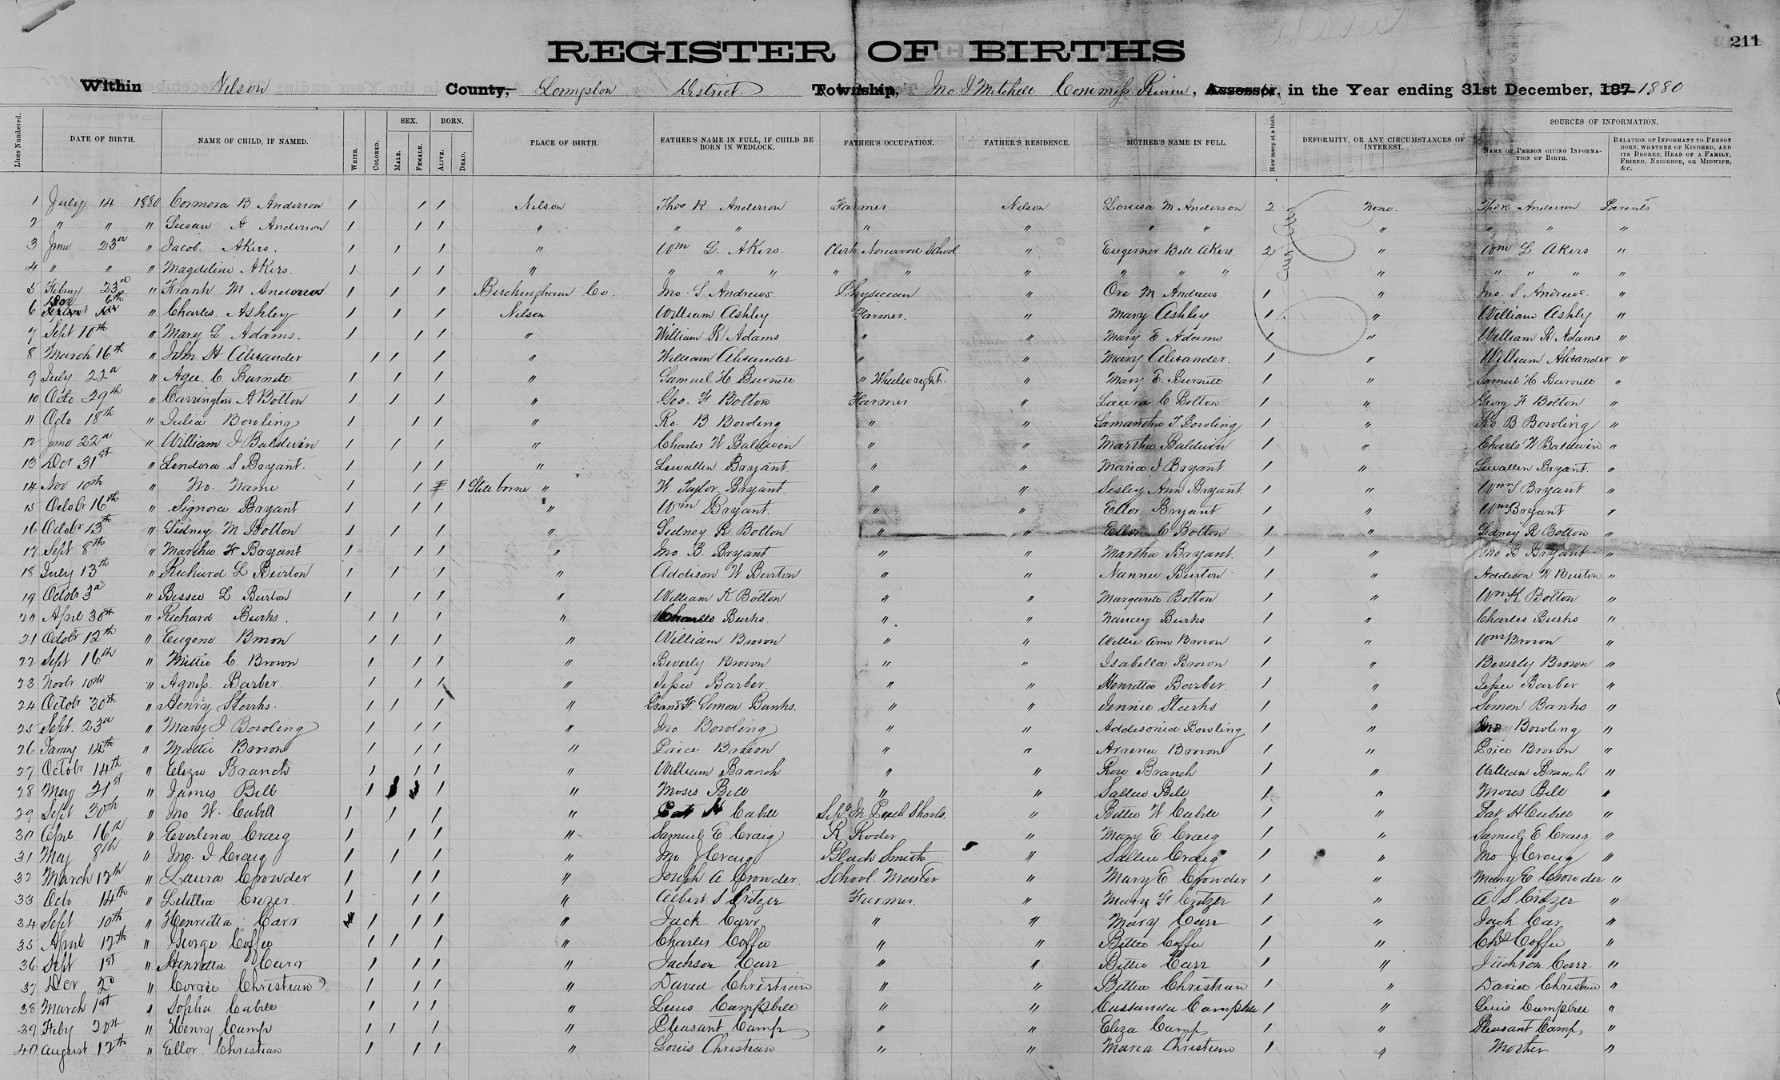 211
REGISTER OF BIRTHS
Within Nelson County, District Township, Jno. J Mitchell Assessor, in the Year ending 31st December, 187 1880
Lines Numbered. DATE OF BIRTH. NAME OF CHILD, IF NAMED. WHITE. COLORED. SEX. MALE. FEMALE. BORN. ALIVE. DEAD. PLACE OF BIRTH. FATHER'S NAME IN FULL, IF CHILD BE BORN IN WEDLOCK. FATHER'S OCCUPATION. FATHER'S RESIDENCE. MOTHER'S NAME IN FULL. How many at a birth. DEFORMITY, OR ANY CIRCUMSTANCES OF INTEREST. SOURCES OF INFORMATION. NAME OF PERSON GIVING INFORMATION OF BIRTH. RELATION OF INFORMANT TO PERSON BORN, WHETHER OF KINDRED, AND ITS DEGREE, HEAD OF A FAMILY, FRIEND, NEIGHBOR, OR MIDWIFE, &C.
1 July 14 1880 Cormora B Anderson / / / Nelson Thos R. Anderson Farmer Nelson Louisa M Anderson 2 None. Thos R Anderson Parents
2 " " " Susan A Anderson / / / " " " " " " " " "
3 June 23rd " Jacob Akers. / / / " Wm L. Akers. Clerk Norwood School " Bell Akers 2 " Wm L Akers "
4 " " " Magdeline Akers. / / / " " " " " " " " " " " " " " "
5 23rd " Frank M / / / Buckingham Co. Jno. S Andrews Physician " Ore M Andrews 1 " Jno. S Andrews "
6 6th " Charles Ashley / / / Nelson William Ashley Farmer. " Mary Ashley 1 " William Ashley "
7 Sept 10th " Mary L Adams. / / / " William R Adams " " Mary E Adams 1 " William R Adams "
8 March 16th " John H Alexander / / / " William Alexander " " Mary Alexander. 1 " William Alexander "
9 July 22d " C Burnett / / / " Samuel H Burnett " Wheelwright. " Mary E. Burnett 1 " Samuel H Burnett "
10 Octo 29th " Carrington A Bolton / / / " Geo. F Bolton Farmer " Laura C Bolton 1 " Georg F Bolton "
11 Octo 18th " Julia Bowling / / / " Ro. B Bowling " " Samantha T Bowling 1 " Ro B Bowling "
12 June 22d " William J Baldwin / / / " Charles W Baldwin " " Martha Baldwin 1 " Charls W Baldwin "
13 31st " Lendora S Bryant. / / / " Lewallen Bryant. " " Maria J Bryant 1 " Lewallen Bryant. "
14 Nov 10th " No. Name / / 1 Still borne " W Taylor Bryant " " Sesley Ann Bryant 1 " Wm T Bryant "
15 Octobr 16th " Signora Bryant / / / " Wm Bryant. " " Ellor Bryant 1 " Wm Bryant "
16 Octobr 13th " Sidney M Bolton / / / " Sidney R Bolton " " Ellen C Bolton 1 " Sidney R Bolton "
17 Sept 8th " Martha F Bryant / / / " Jno B. Bryant " " Martha Bryant. 1 " Jno B Bryant "
18 July 13th " Richard L Burton / / / " Addison W Burton " " Nannie Burton 1 " Addison W Burton "
19 Octobr 3d " Bessie L Burton / / / " William K Bolton " " Margarete Bolton 1 " Wm K Bolton "
20 April 30th " Richard Burks. / / / " Charles Burks. " " Nancy Burks 1 " Charles Burks "
21 Octobr 12th " Eugene Brown / / / " William Brown " " Willie Ann Brown 1 " Wm Brown "
22 Sept 16th " C Brown / / / " Beverly Brown " " Isabella Brown 1 " Beverly Brown "
23 Novbr 10th " Agness Barber. / / / " Jesse Barber. " " Henretta Barber. 1 " Jesse Barber "
24 Octobr 30th " Henry Starks. / / / " Grand F. Simon Banks. " " Jennie Starks 1 " Simon Banks "
25 Sept. 23d " Mary J Bowling / / / " Jno Bowling " " Addisonia Bowling 1 " Jno Bowling "
26 14th " Mattie Brown / / / " Price Brown " " Brown 1 " Price Brown "
27 Octobr 14th " Eliza Branch / / / " William Branch " " Rose Branch 1 " William Branch "
28 May 21st " James Bell / / / " Moses Bell " " Sallie Bell 1 " Moses Bell "
29 Sept 30th " Jno W. Cabell / / / " Pat H Cabell Schools. " Bettie W Cabell 1 " Pat H Cabell "
30 Aprl 16th " Everlena Craig / / / " Samuel E Craig R Roder " Mary E Craig 1 " Samuel E Craig "
31 May 8th " Jno. J Craig / / / " Jno J Craig Black Smith " Sallie Craig 1 " Jno J Craig "
32 March 12th " Laura Crowder / / / " Joseph A Crowder. School. Master " Mary E Crowder 1 " Mary E Crowder "
33 Octo 14th " Letitia Crizer. / / / " Albert S Critzer Farmer. " Mary F Critzer 1 " A S Critzer "
34 Sept 10th " Henrietta Carr / / / " Jack Carr. " " Mary Carr 1 " Jack Car "
35 April 12th " George Coffee / / / " Charles Coffee " " Bettie Coffee 1 " Chs Coffee "
36 Sept 1st " Henretta Carr / / / " Jackson Carr " " Bettie Carr 1 " Jackson Carr "
37 2d " Christian / / / " David Christian " " Bettie Christian 1 " David Christian "
38 March 1st " Sopha Cabell / / / " Lewis Campbell " " Cassanda 1 " Lewis Campbell "
39 Feby 20th " Henry Camp / / / " Pleasant Camp " " Eliza Camp 1 " Pleasant Camp, "
40 August 12th " Ellor Christian / / / " Louis Christian " " Maria Christian 1 " Mother "